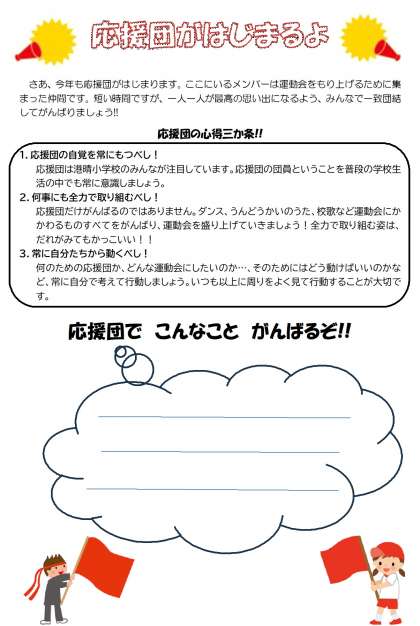 応援団がはじまるよ
さあ、今年も応援団がはじまります。ここにいるメンバーは運動会をもり上げるために集
まった仲間です。短い時間ですが、一人一人が最高の思い出になるよう、みんなで一致団結
してがんばりましょう!!
応援団の心得三か条!!
1. 応援団の自覚を常にもつべし！
応援団は港晴小学校のみんなが注目しています。応援団の団員ということを普段の学校生
活の中でも常に意識しましょう。
2. 何事にも全力で取り組むべし！
応援団だけがんばるのではありません。ダンス、うんどうかいのうた、校歌など運動会にか
かわるものすべてをがんばり、運動会を盛り上げていきましょう！全力で取り組む姿は、
だれがみてもかっこいい！！
3. 常に自分たちから動くべし！
何のための応援団か、どんな運動会にしたいのか…、そのためにはどう動けばいいのかな
ど、常に自分で考えて行動しましょう。いつも以上に周りをよく見て行動することが大切で
す。
応援団で こんなこと がんばるぞ!!